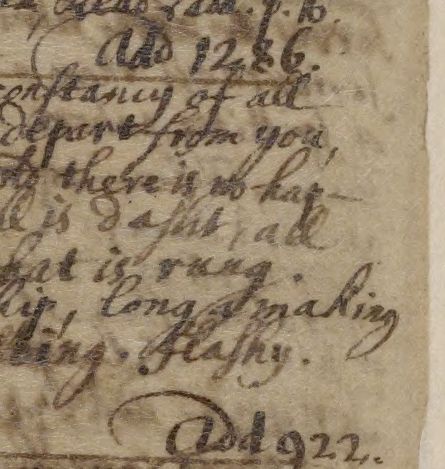 read & add. p. 16.
Add 1286.
constancy of all
depart from you,
there is no hap-
ll is dasht, all
hat is rung.
long a making
king. flashy.
Add 922.